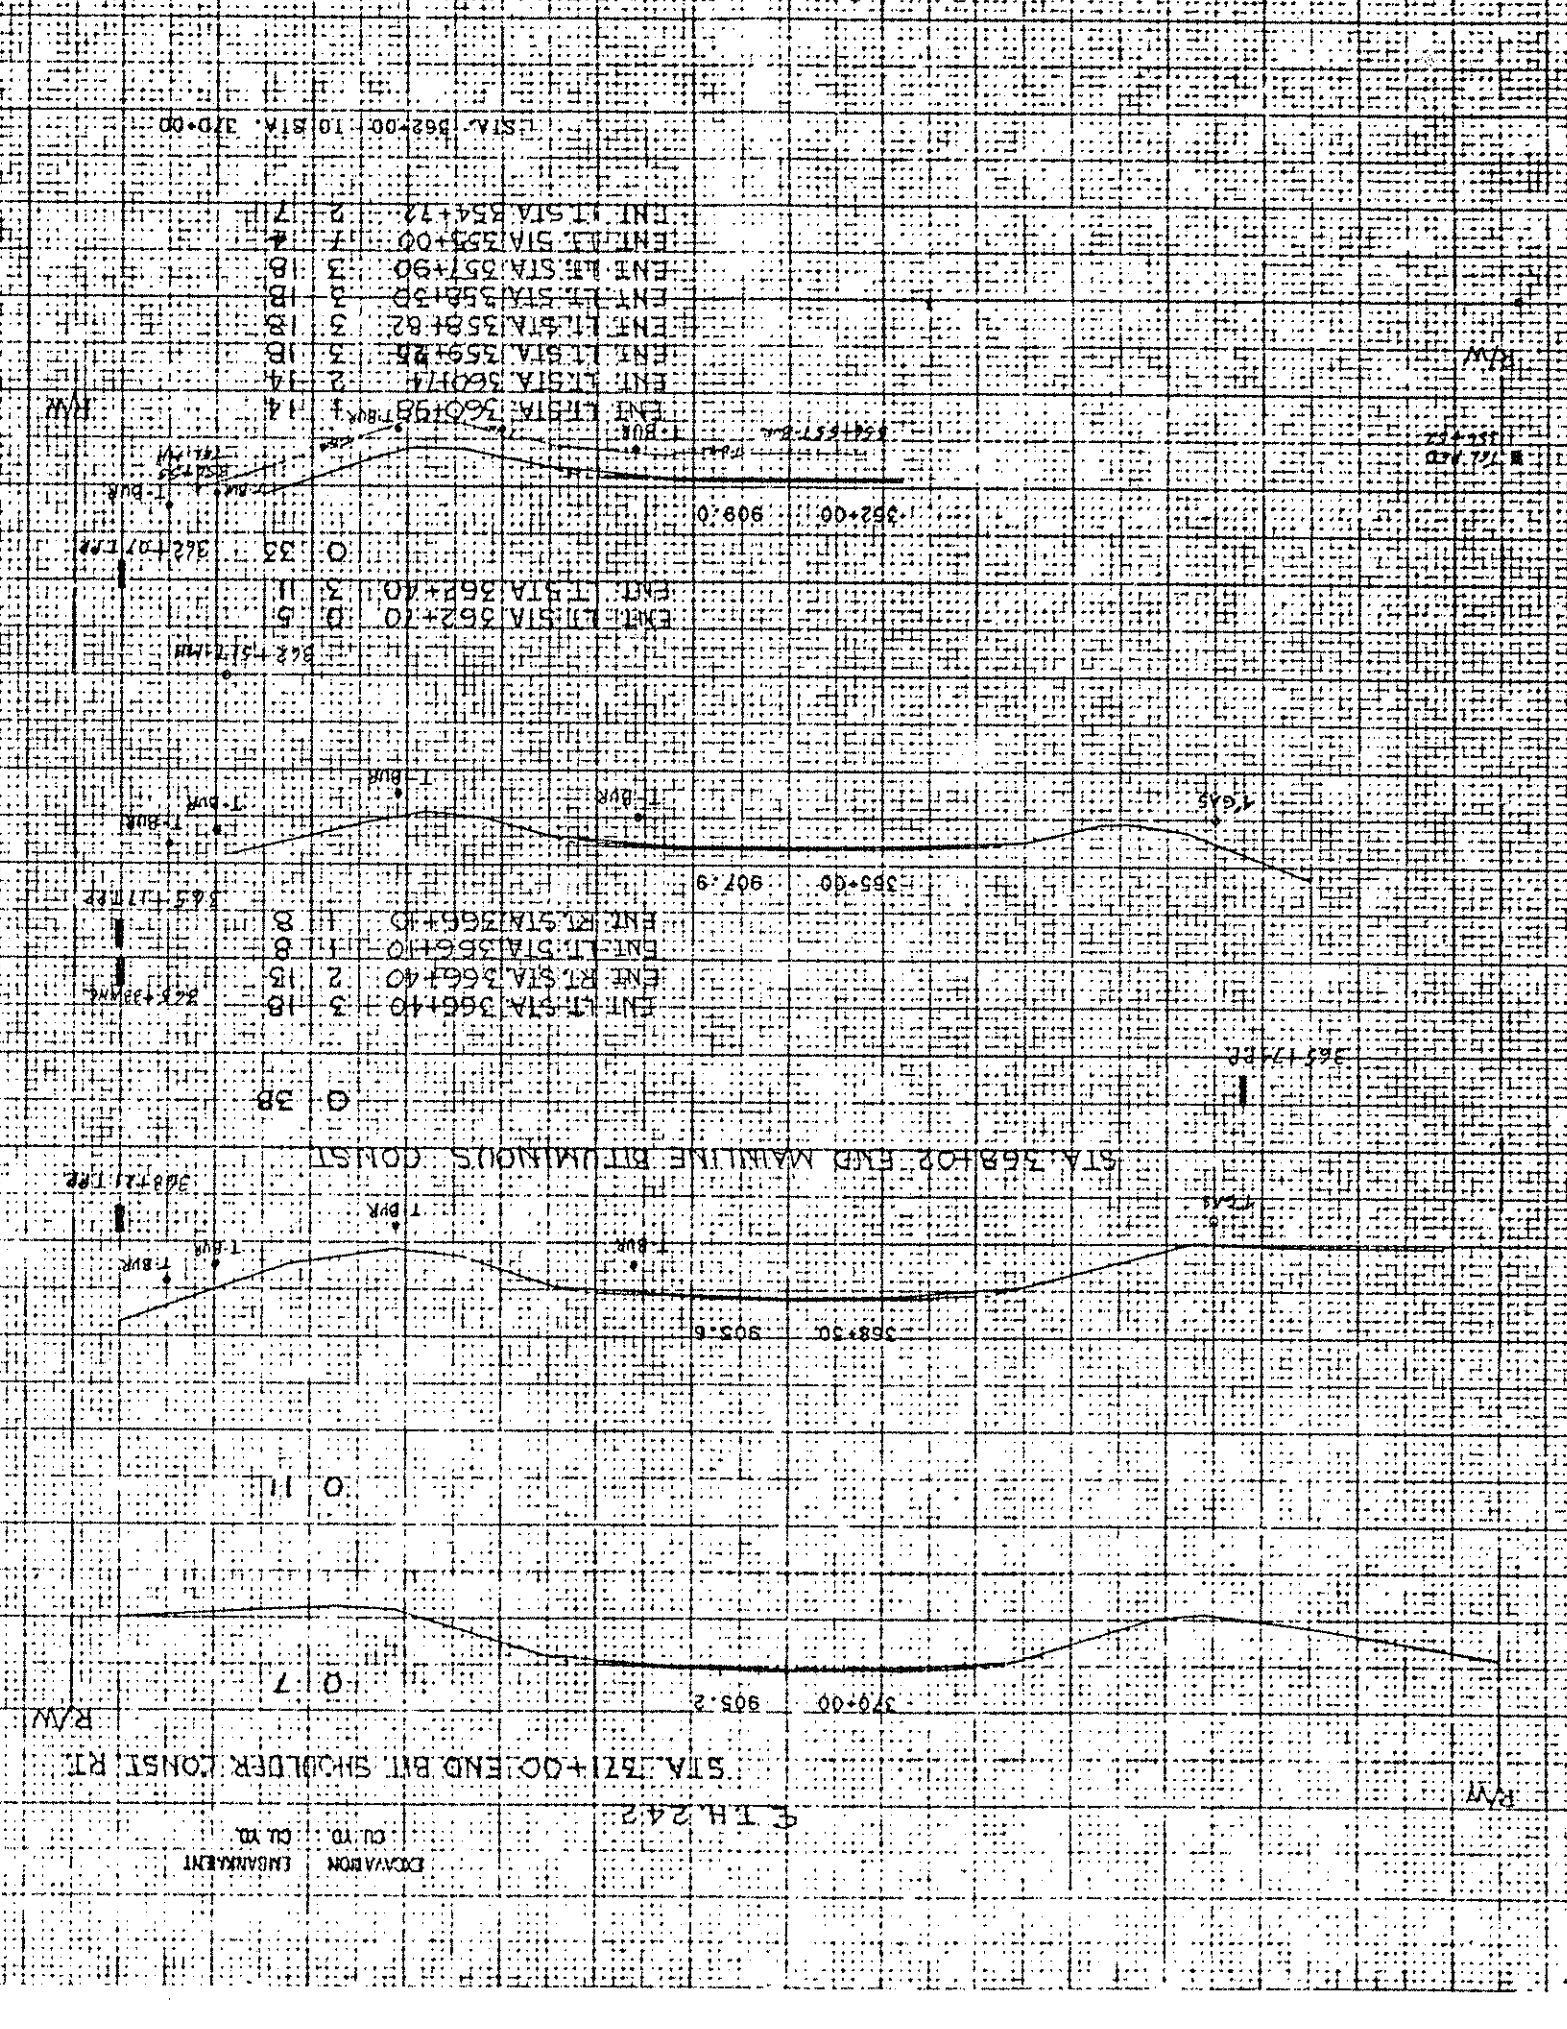 EXCAVATION EMBANKMENT
CU. YD. CU. YD.
℄ T.H. 242
R/W
STA. 371+00 END BIT. SHOULDER CONST. RT.
R/W
370+00 905.2
0 7
0 11
368+50 905.6
T-BUR
T-BUR
T-BUR
T-BUR
T-GAS
368+21 T.PP
STA. 368+02 END MAINLINE BITUMINOUS CONST
0 38
365+71 PP
ENT. LT. STA. 366+40 3 18
365+33 ANC
ENT. RT. STA. 366+40 2 13
ENT. LT. STA. 366+10 1 8
ENT. RT. STA. 366+10 1 8
365+17 T.PP
365+00 907.9
T-BUR
T-BUR
T-GAS
T-BUR
T-BUR
362+51 T-MH
ENT. LT. STA. 362+70 0 5
ENT. LT. STA. 362+40 3 11
0 33
362+07 T.PP
362+00 909.0
T-BUR
T-BUR
T-BUR
T-BUR
TEL PED
R/W
ENT. LT. STA. 360+98 1 14
ENT. LT. STA. 360+74 2 14
ENT. LT. STA. 359+25 3 18
R/W
ENT. LT. STA. 358+82 3 18
ENT. LT. STA. 358+30 3 18
ENT. LT. STA. 357+90 3 18
ENT. LT. STA. 355+00 1 4
ENT. LT. STA. 354+72 2 7
STA. 362+00 TO STA. 370+00